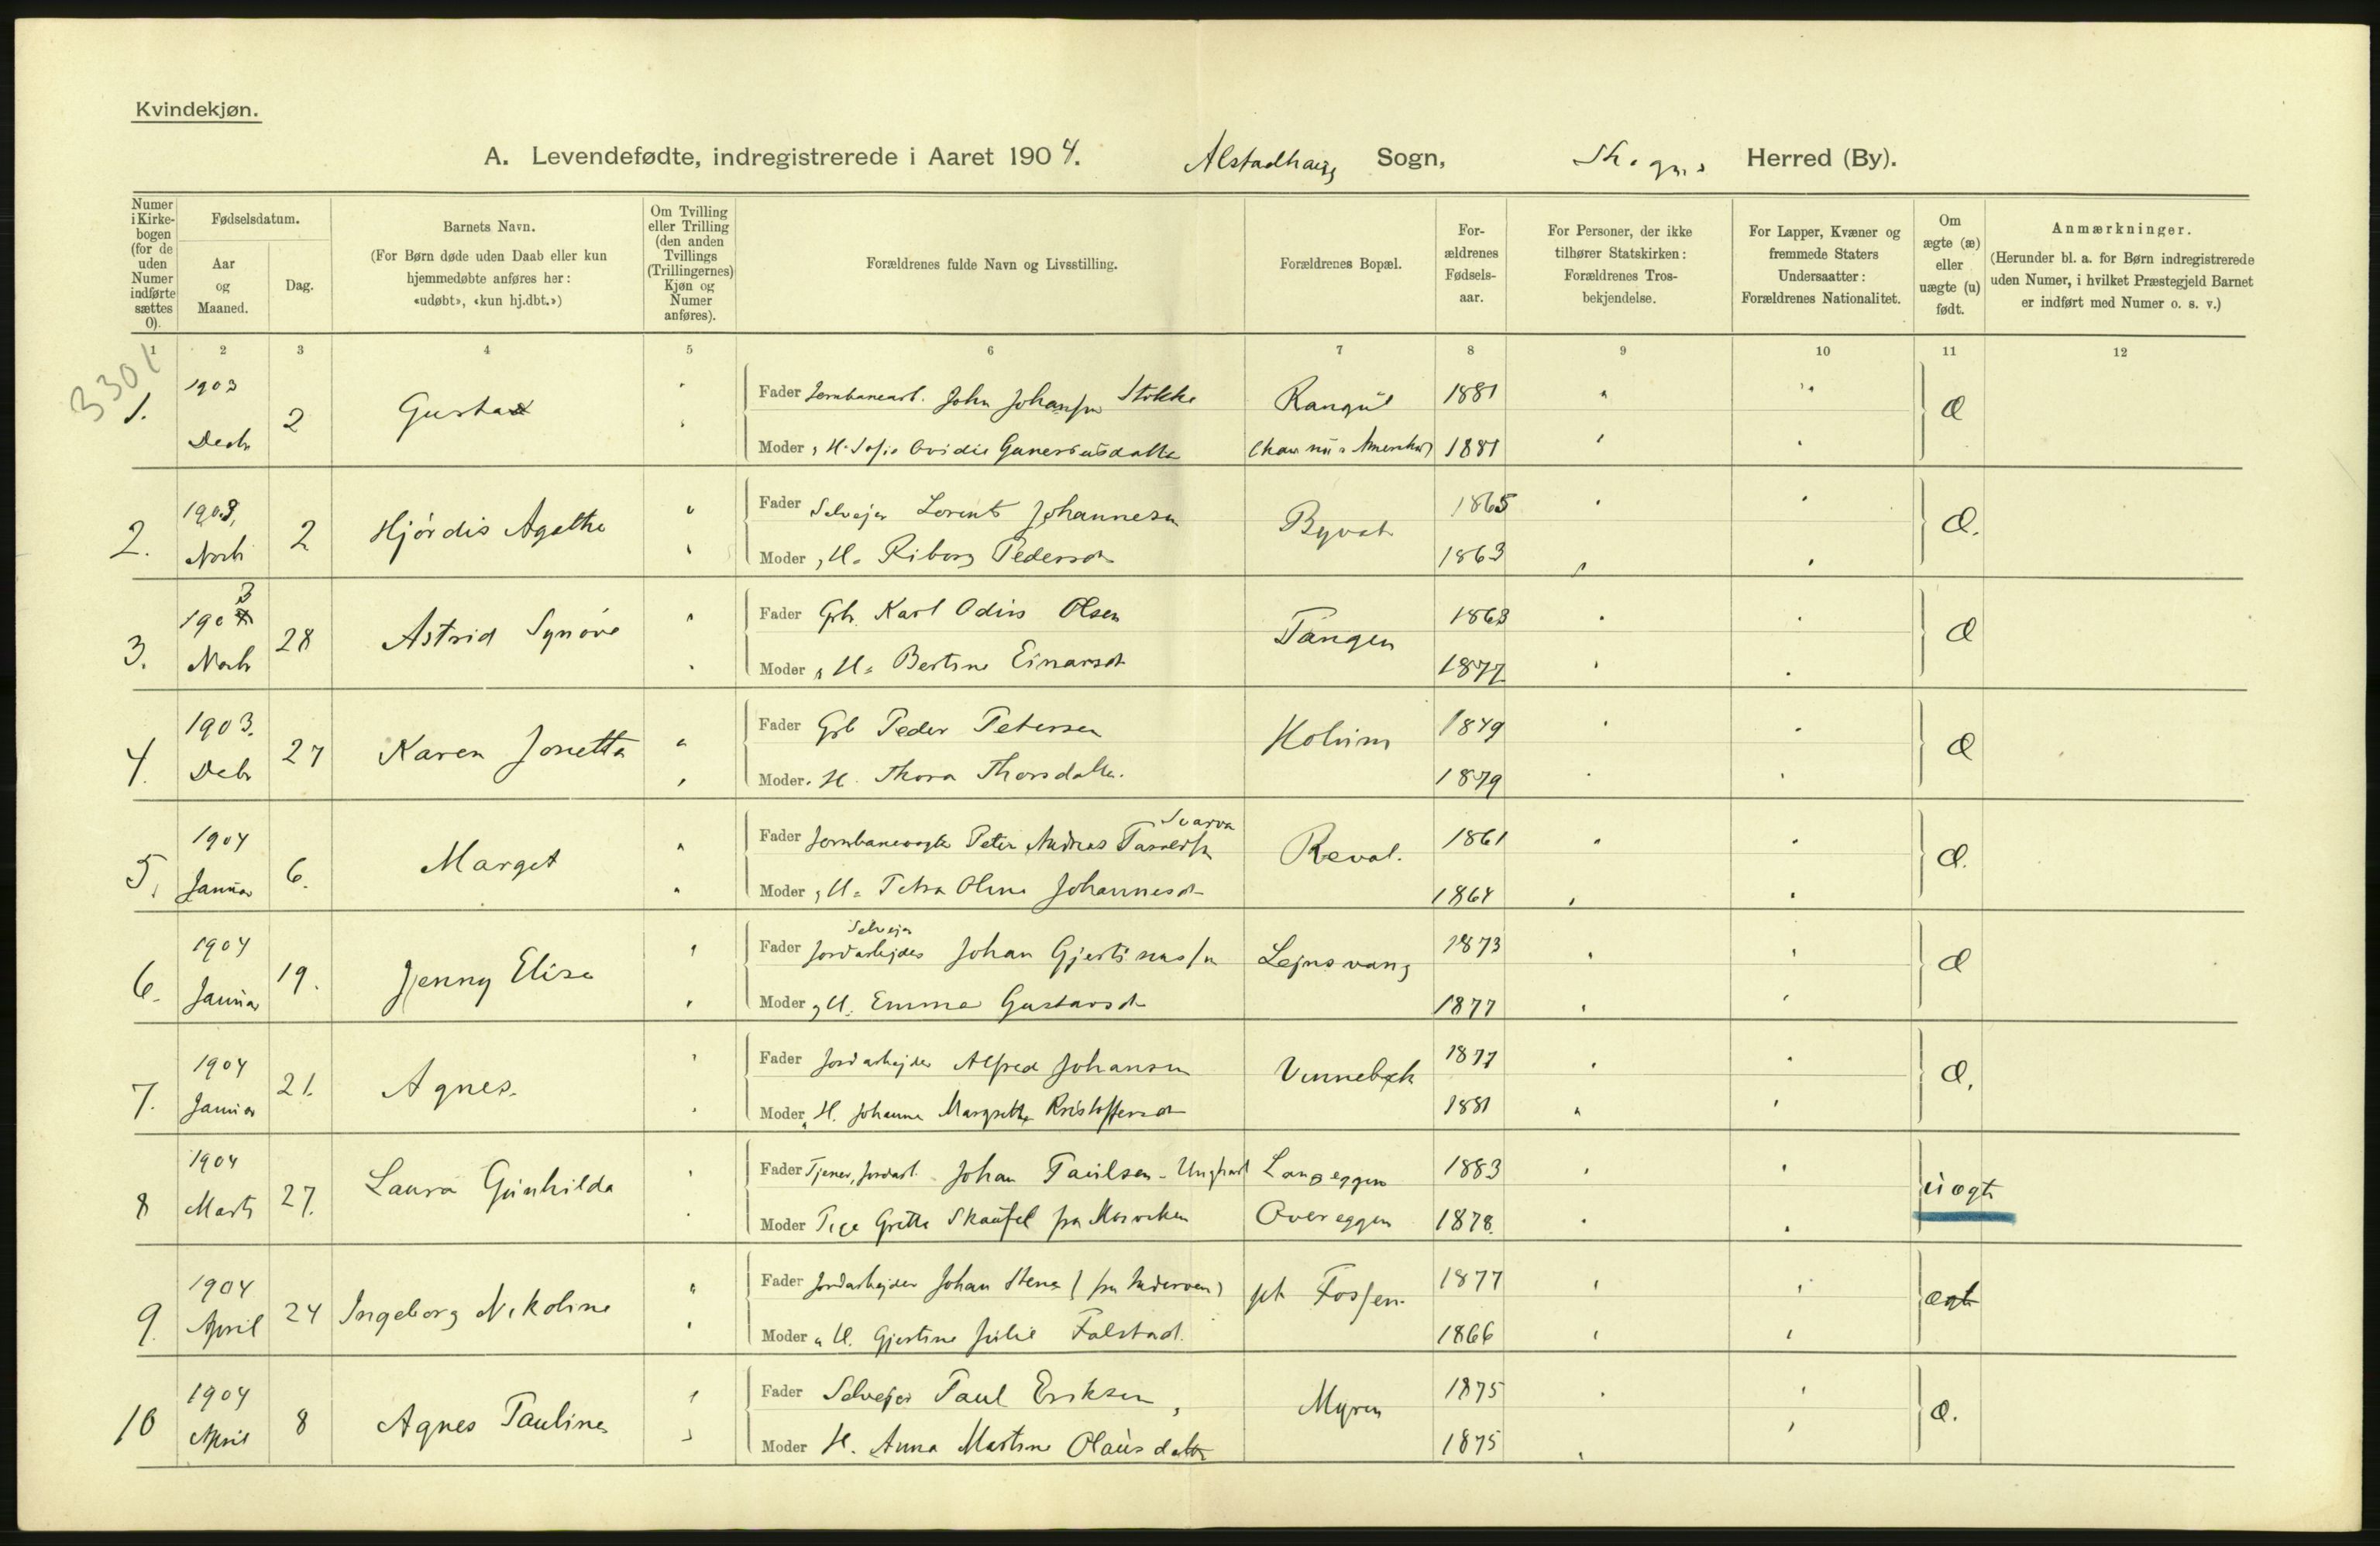 Kvindekjøn.
A. Levendefødte, indregistrerede i Aaret 1904. Alstadhaug Sogn, Skogn Herred (By).
Numer i Kirkebogen (for de uden Numer indførte sættes 0).
Fødselsdatum.
Aar og Maaned.
Dag.
Barnets Navn.
(For Børn døde uden Daab eller kun hjemmedøbte anføres her: «udøbt», «kun hj.dbt.»)
Om Tvilling eller Trilling (den anden Tvillings (Trillingernes) Kjøn og Numer anføres).
Forældrenes fulde Navn og Livsstilling.
Forældrenes Bopæl.
Forældrenes Fødselsaar.
For Personer, der ikke tilhører Statskirken: Forældrenes Trosbekjendelse.
For Lapper, Kvæner og fremmede Staters Undersaatter: Forældrenes Nationalitet.
Om ægte (æ) eller uægte (u) født.
Anmærkninger.
(Herunder bl. a. for Børn indregistrerede uden Numer, i hvilket Præstegjeld Barnet er indført med Numer o. s. v.)
1 2 3 4 5 6 7 8 9 10 11 12
3301
1. 1903 Decbr 2 Gusta
Fader Jernbanearb. John Johansen Stokke 1881 æ
Moder H. Sofie Ovidie 1881
2. 1903, Novbr 2 Hjördis Agathe
Fader Selvejer Lorents Johannesen 1865 æ.
Moder, H. Riborg Pedersd 1863
3. 1903 Novbr 28 Astrid Synöve
Fader Gbr. Karl Odin Olsen Tangen 1863 æ
Moder H. Bertine Einarsd 1877
4. 1903. Debr 27 Karen Jonetta
Fader Gbr Peder Petersen 1879 æ
Moder. H. Thora Thorsdatter. 1879
5. 1904 Januar 6. Marget
Fader Jernbanevogter Peter Andreas Svarva Reval. 1861 æ.
Moder, H. Petra Oline Johannesd 1864
6. 1904 Januar 19. Jenny Elise
Selvejer
Fader Jordarbejder Johan Gjertinussen 1873 æ
Moder, H. Emma Gustavsd 1877
7. 1904 Januar 21. Agnes.
Fader Jordarbejder Alfred Johansen Vinnebæk 1877 æ.
Moder H. Johanna Margrethe Kristoffersd 1881
8 1904 Marts 27. Laura Gunhilda
Fader Tjener, Jordarb. Johan Paulsen - Ungkarl Langeggen 1883 uægte
Moder Pige Grethe Skaufel fra Overeggen 1878.
9. 1904 April 24 Ingeborg Nikoline
Fader Jordarbejder Johan Stene (fra Inderøen) 1877 ægte
Moder H. Gjertine Julie Falstad. 1866
10 1904 April 8 Agnes Pauline
Fader Selvejer Paul Eriksen, Myren 1875 æ.
Moder H. Anna Martine Olausdatter 1875